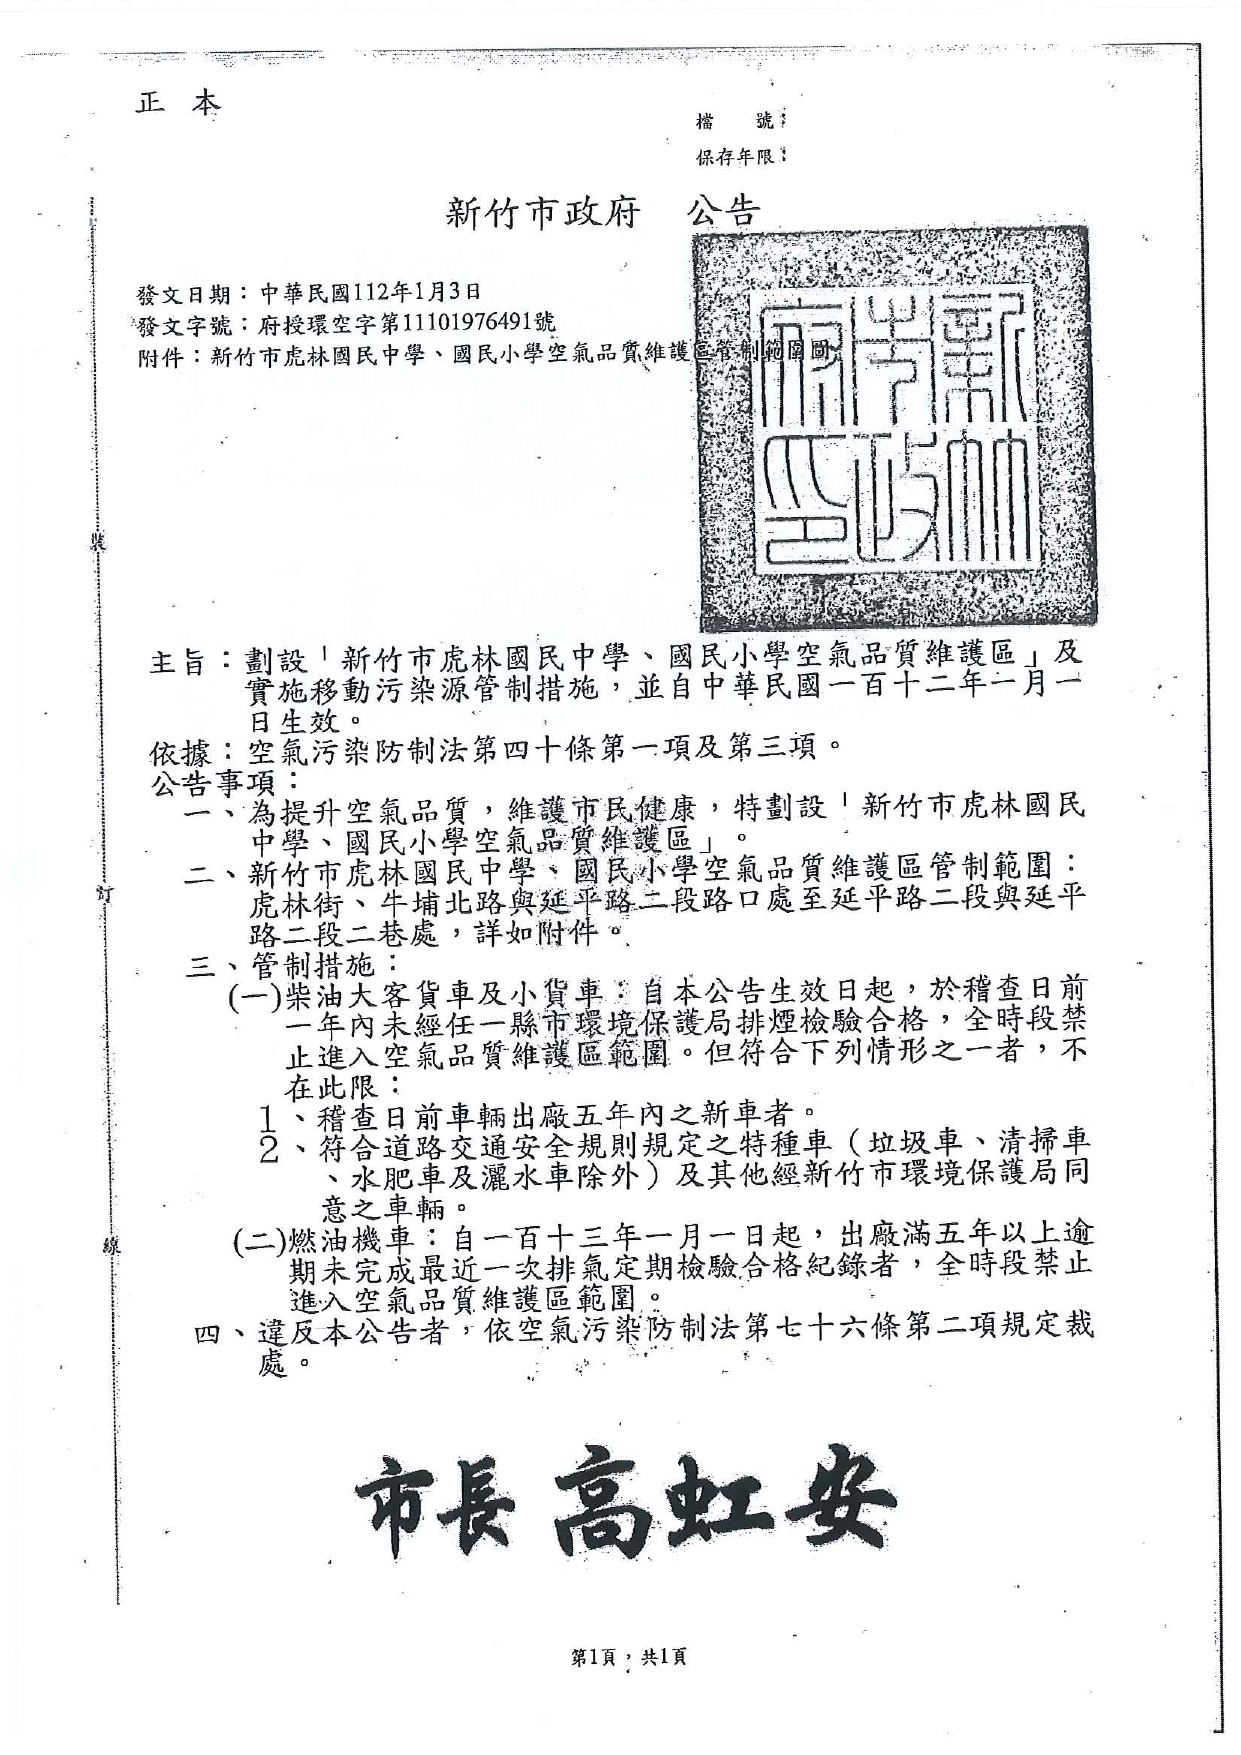 正 本
檔 號：
保存年限：
新竹市政府 公告
發文日期：中華民國112年1月3日
發文字號：府授環空字第11101976491號
附件：新竹市虎林國民中學、國民小學空氣品質維護區管制範圍圖
新竹市政府印
主旨：劃設「新竹市虎林國民中學、國民小學空氣品質維護區」及
實施移動污染源管制措施，並自中華民國一百十二年一月一
日生效。
依據：空氣污染防制法第四十條第一項及第三項。
公告事項：
一、為提升空氣品質，維護市民健康，特劃設「新竹市虎林國民
中學、國民小學空氣品質維護區」。
二、新竹市虎林國民中學、國民小學空氣品質維護區管制範圍：
虎林街、牛埔北路與延平路二段路口處至延平路二段與延平
路二段二巷處，詳如附件。
三、管制措施：
(一)柴油大客貨車及小貨車：自本公告生效日起，於稽查日前
一年內未經任一縣市環境保護局排煙檢驗合格，全時段禁
止進入空氣品質維護區範圍。但符合下列情形之一者，不
在此限：
1、稽查日前車輛出廠五年內之新車者。
2、符合道路交通安全規則規定之特種車（垃圾車、清掃車
、水肥車及灑水車除外）及其他經新竹市環境保護局同
意之車輛。
(二)燃油機車：自一百十三年一月一日起，出廠滿五年以上逾
期未完成最近一次排氣定期檢驗合格紀錄者，全時段禁止
進入空氣品質維護區範圍。
四、違反本公告者，依空氣污染防制法第七十六條第二項規定裁
處。
市長 高虹安
第1頁，共1頁
裝
訂
線